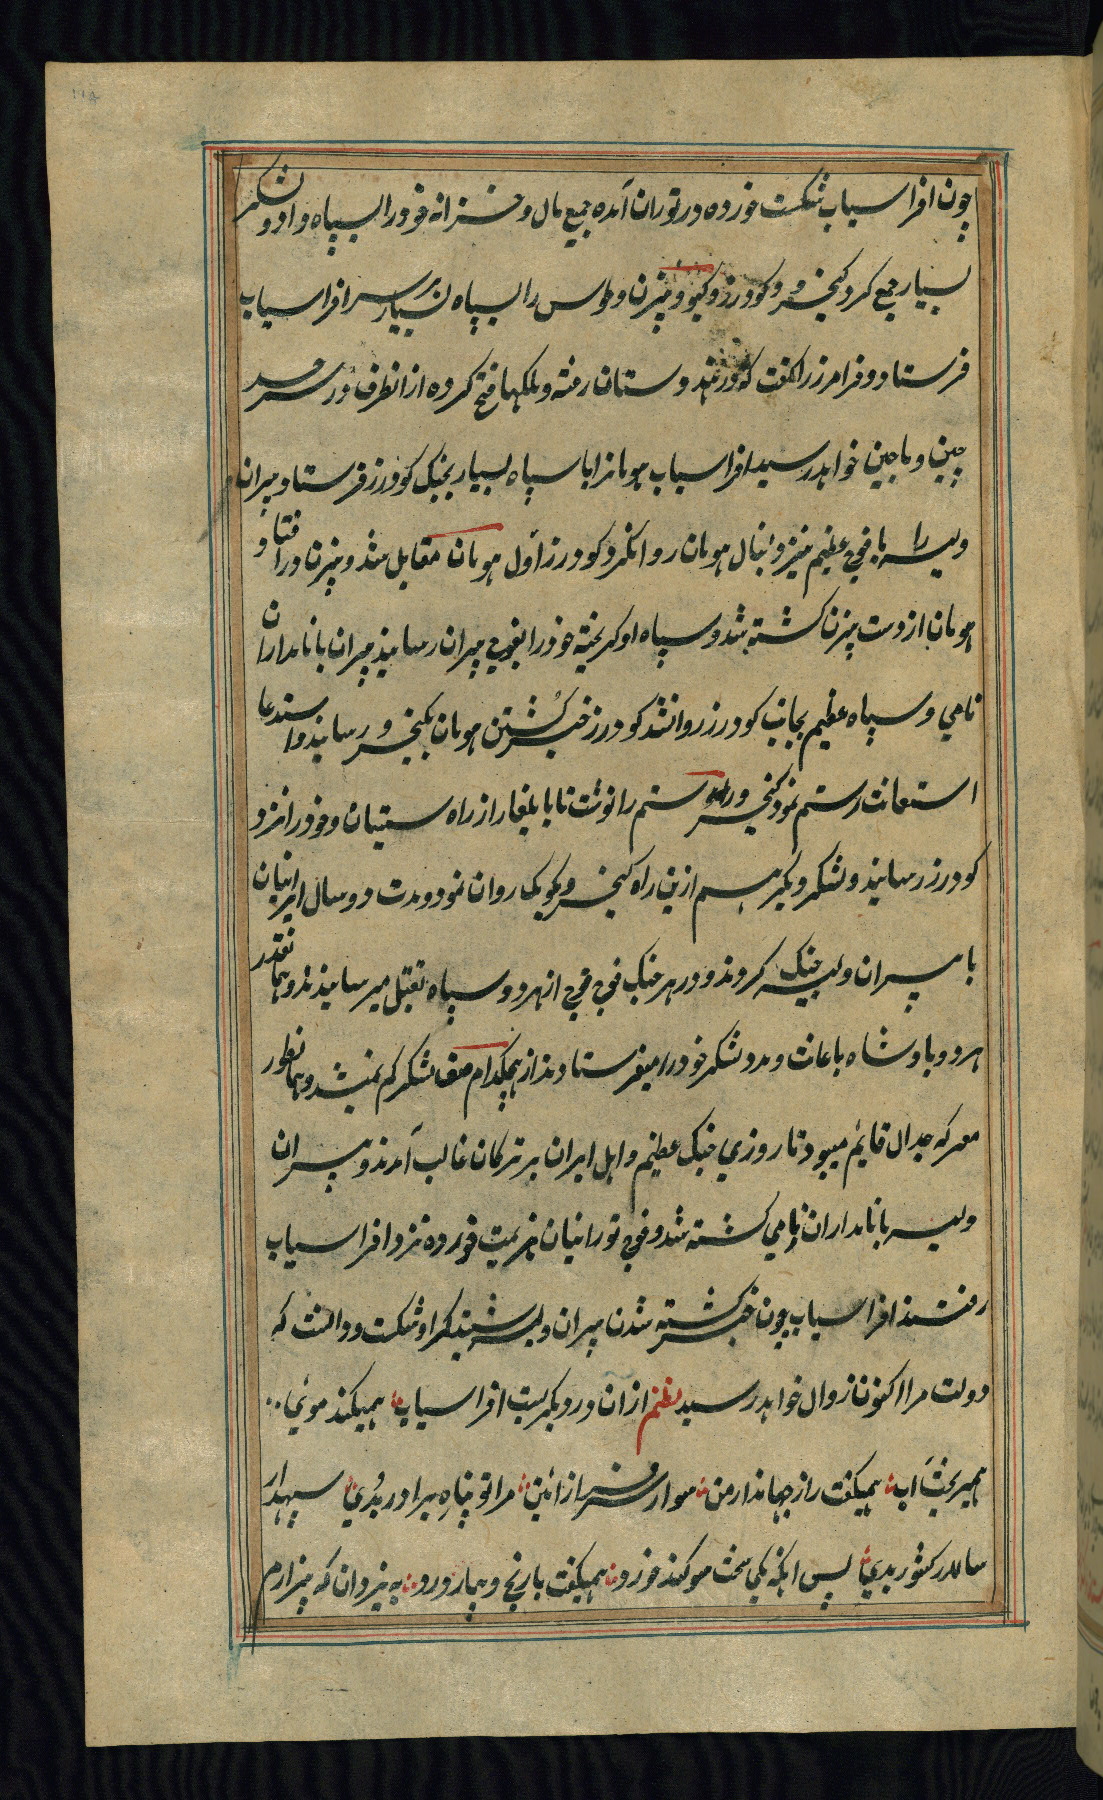 چون افراسیاب شکست خورده در توران آمده جمیع مال و خزانه خود را بسپاه داد و لشکر
بسیار جمع کرد کیخسرو کودرز و کیو و بیژن و طوس را بسپاه بسیار بر سر افراسیاب
فرستاد و فرامرز را گفت که در هندوستان رفته و ملکها فتح کرده از انطرف در سرحد
چین و ماچین خواهد رسید افراسیاب هومانرا با سپاه بسیار بجنک کودرز فرستاد و پیران
ویسه را با فوج عظیم نیز دنبال هومان روانکرد کودرز اول هومان مقابل شد و بیژن در افتاد و
هومان از دست بیژن کشته شد و سپاه او کریخته خود را بفوج پیران رسانید پیران با نامداران
نامی و سپاه عظیم بجانب کودرز روانشد کودرز خبر کشتن هومان بکیخسرو رسانید و استدعا
استعانت رستم نمود کیخسرو رستم را نوشت تا با یلغار از راه سیستان خود را نزد
کودرز رساند و لشکر دیکر هم ازین راه کیخسرو بکومک روان نمود و مدت دو سال ایرانیان
با پیران ویسه جنک کردند و در هر جنک فوج فوج از هر دو سپاه بقتل میرسانیدند و همانقدر
هر دو پادشاه باعانت و مدد لشکر خود را میفرستادند از هیچکدام صف لشکر کم نمیشد و همانطور
معرکه جدال قایم میبود تا روزی جنک عظیم و اهل ایران بر ترکان غالب آمدند و پیران
ویسه با نامداران نامی کشته شد و فوج تورانیان هزیمت خورده نزد افراسیاب
رفتند افراسیاب چون خبر کشته شدن پیران ویسه شنید کمر او شکست و دانست که
دولت مرا اکنون زوال خواهد رسید نظم از ان درد بکریست افراسیاب همیکند موئی
همیریخت آب همیکفت راز جهاندار من سوار سرافراز ائین مرا تو پناه برادر بدی سپهدار
سالار کشور بدی پس انکه یکی سخت سوکند خورد همیکفت با رنج و تیمار و درد به یزدان که بیزارم